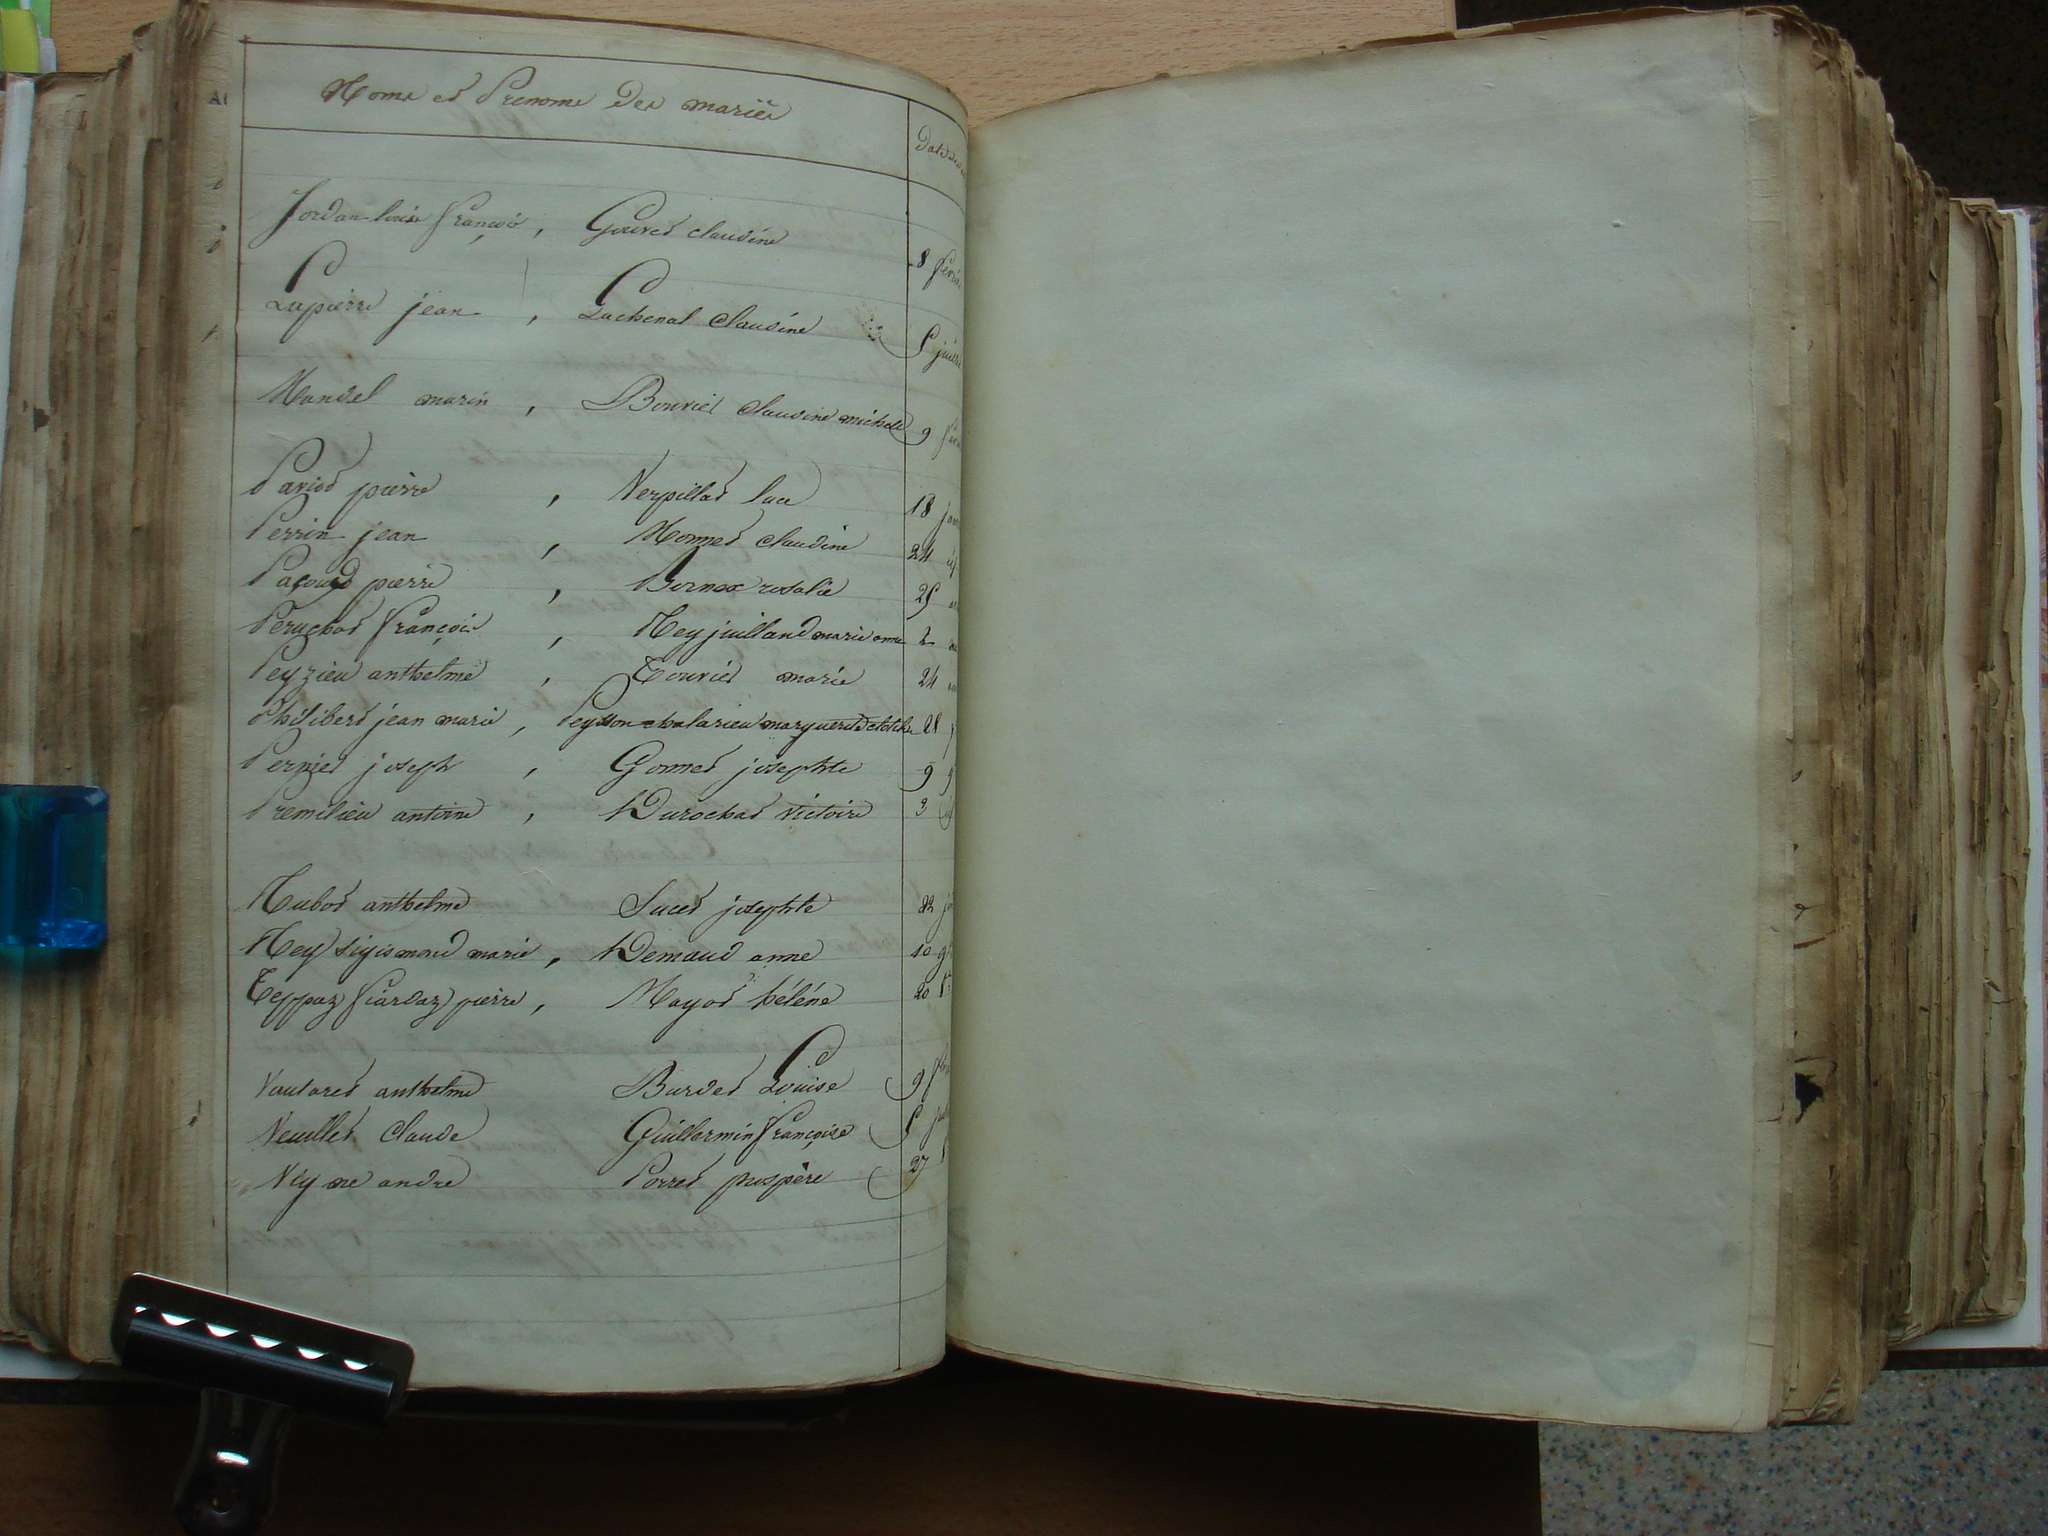 Noms et Prenoms Des mariés
Jordan louis françois, Gouvet claudine 8
Lapierre jean, Lachenal Claudine 5
Mandel marin, Bouvier Claudine michelle 9
Pariod pierre, Verpillat luce 18
Perrin jean, Monnet claudine 24
Pacoud pierre, Bernex rosalie 25
Peruchot françois, Rey juilland marie anne 2
Peyzieu anthelme, Touvier marie 24
Philibert jean marie, Peysson chalarieu marguerite 28
Pernet joseph, Gonnet josephte 9
Premilieu antoine, Durochat victoire 3
Rubod anthelme Sucet josephte 22
Rey sigismond marie, Demaud anne 10
Teppaz fiardaz pierre, Mayot hélène 20
Vautaret anthelme Burdet Louise 9
Veuillet Claude Guillermin françoise 5
Veyne andre Porret prospère 27